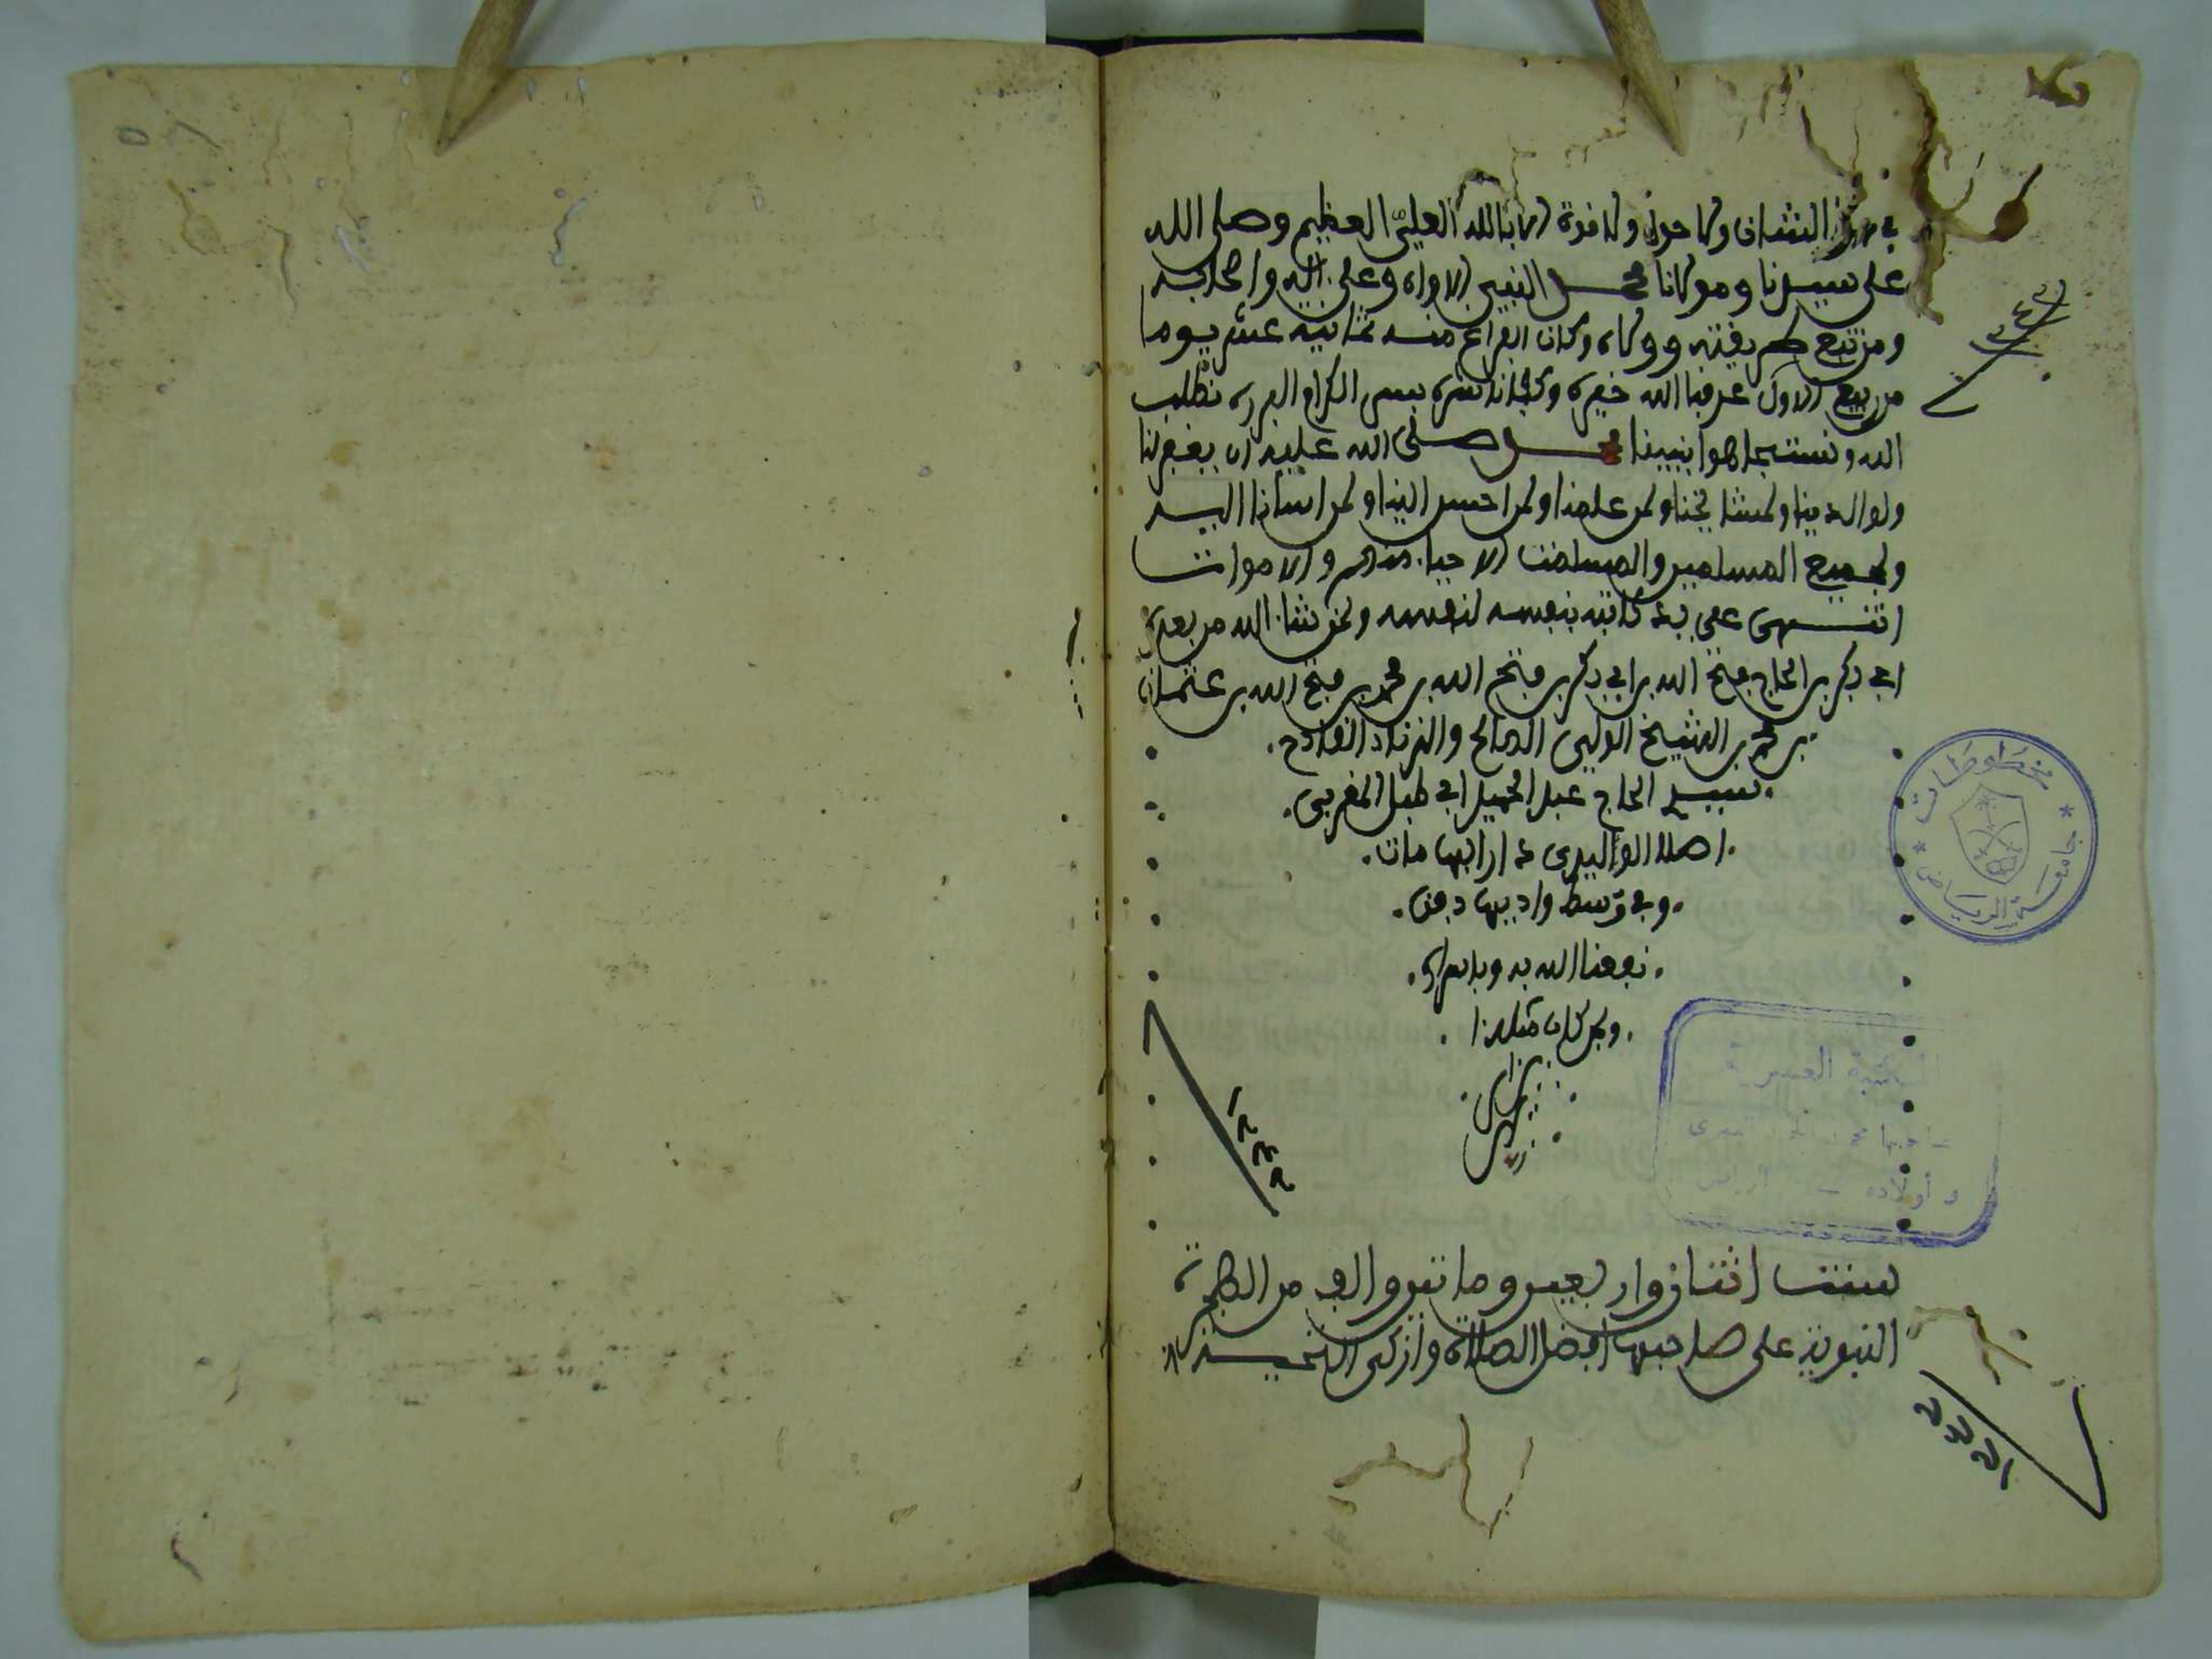 في هذا الشان ولا حول ولا قوة الا بالله العليّ العظيم وصلى الله
على سيدنا ومولانا محمد النبي الاواه وعلى اله واصحابه
ومن تبع طريقته ووالاه وكان الفراغ منه ثمانية عشر يوما
من ربيع الاول عرفنا الله خيره وكفانا شره بيمن الكرام البررة نطلب
الله ونستجاهوا بنبينا محمد صلى الله عليه ان يغفر لنا
ولوالدينا ولمشايخنا ولمن علمنا ولمن احسن الينا ولمن اسانا اليه
ولجميع المسلمين والمسلمت الاحياء منهم والاموات
انتهى على يد كاتبه بنفسه لنفسه ولمن شاء الله من بعده
ابي بكر بن الحاج فتح الله بن ابي بكر بن فتح الله بن محمد بن فتح الله بن عثمان
بن محمد بن الشيخ الولي الصالح والزناد القادح
سيدي الحاج عبد الحميد ابي طبل المغربي
اصلا الواليدي دارا بها مات
وفي وسط واديها دفن
نفعنا الله به وبامثاله
ولمن كان مثلهذا
امين
سنت اثنان واربعين وماتين والف من الهجرة
النبوية على صاحبها افضل الصلاة وازكى التحية
١٢٤٢
١٢٤٢
مخطوطات
جامعة الرياض
المكتبة العسيرية
وأولاده